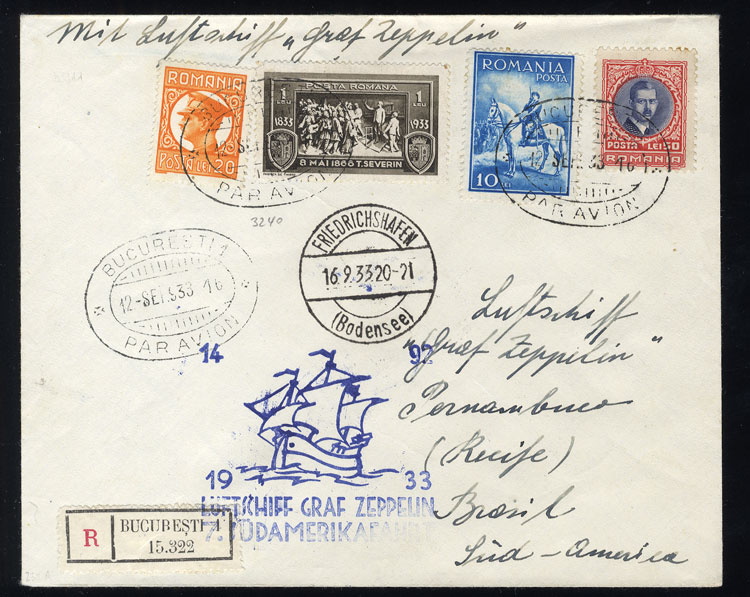 Mit Luftschiff „Graf Zeppelin"
ROMANIA
POSTA LEI 20
POSTA ROMANA
1 LEU
1 LEU
1833
1933
8 MAI 1866 T. SEVERIN
ROMANIA
POSTA
10 LEI
POSTA LEI
ROMANIA
12-SEP.933
PAR AVION
12 SEP.933 16
PAR AVION
3240
BUCUREȘTI 1
12-SEP.933 16
PAR AVION
FRIEDRICHSHAFEN
16.9.33.20-21
(Bodensee)
Luftschiff
„Graf Zeppelin"
Pernambuco
(Recife)
Brasil
Süd-America
14 92
19 33
LUFTSCHIFF GRAF ZEPPELIN
7. SÜDAMERIKAFAHRT
R
BUCUREȘTI 1
15.322